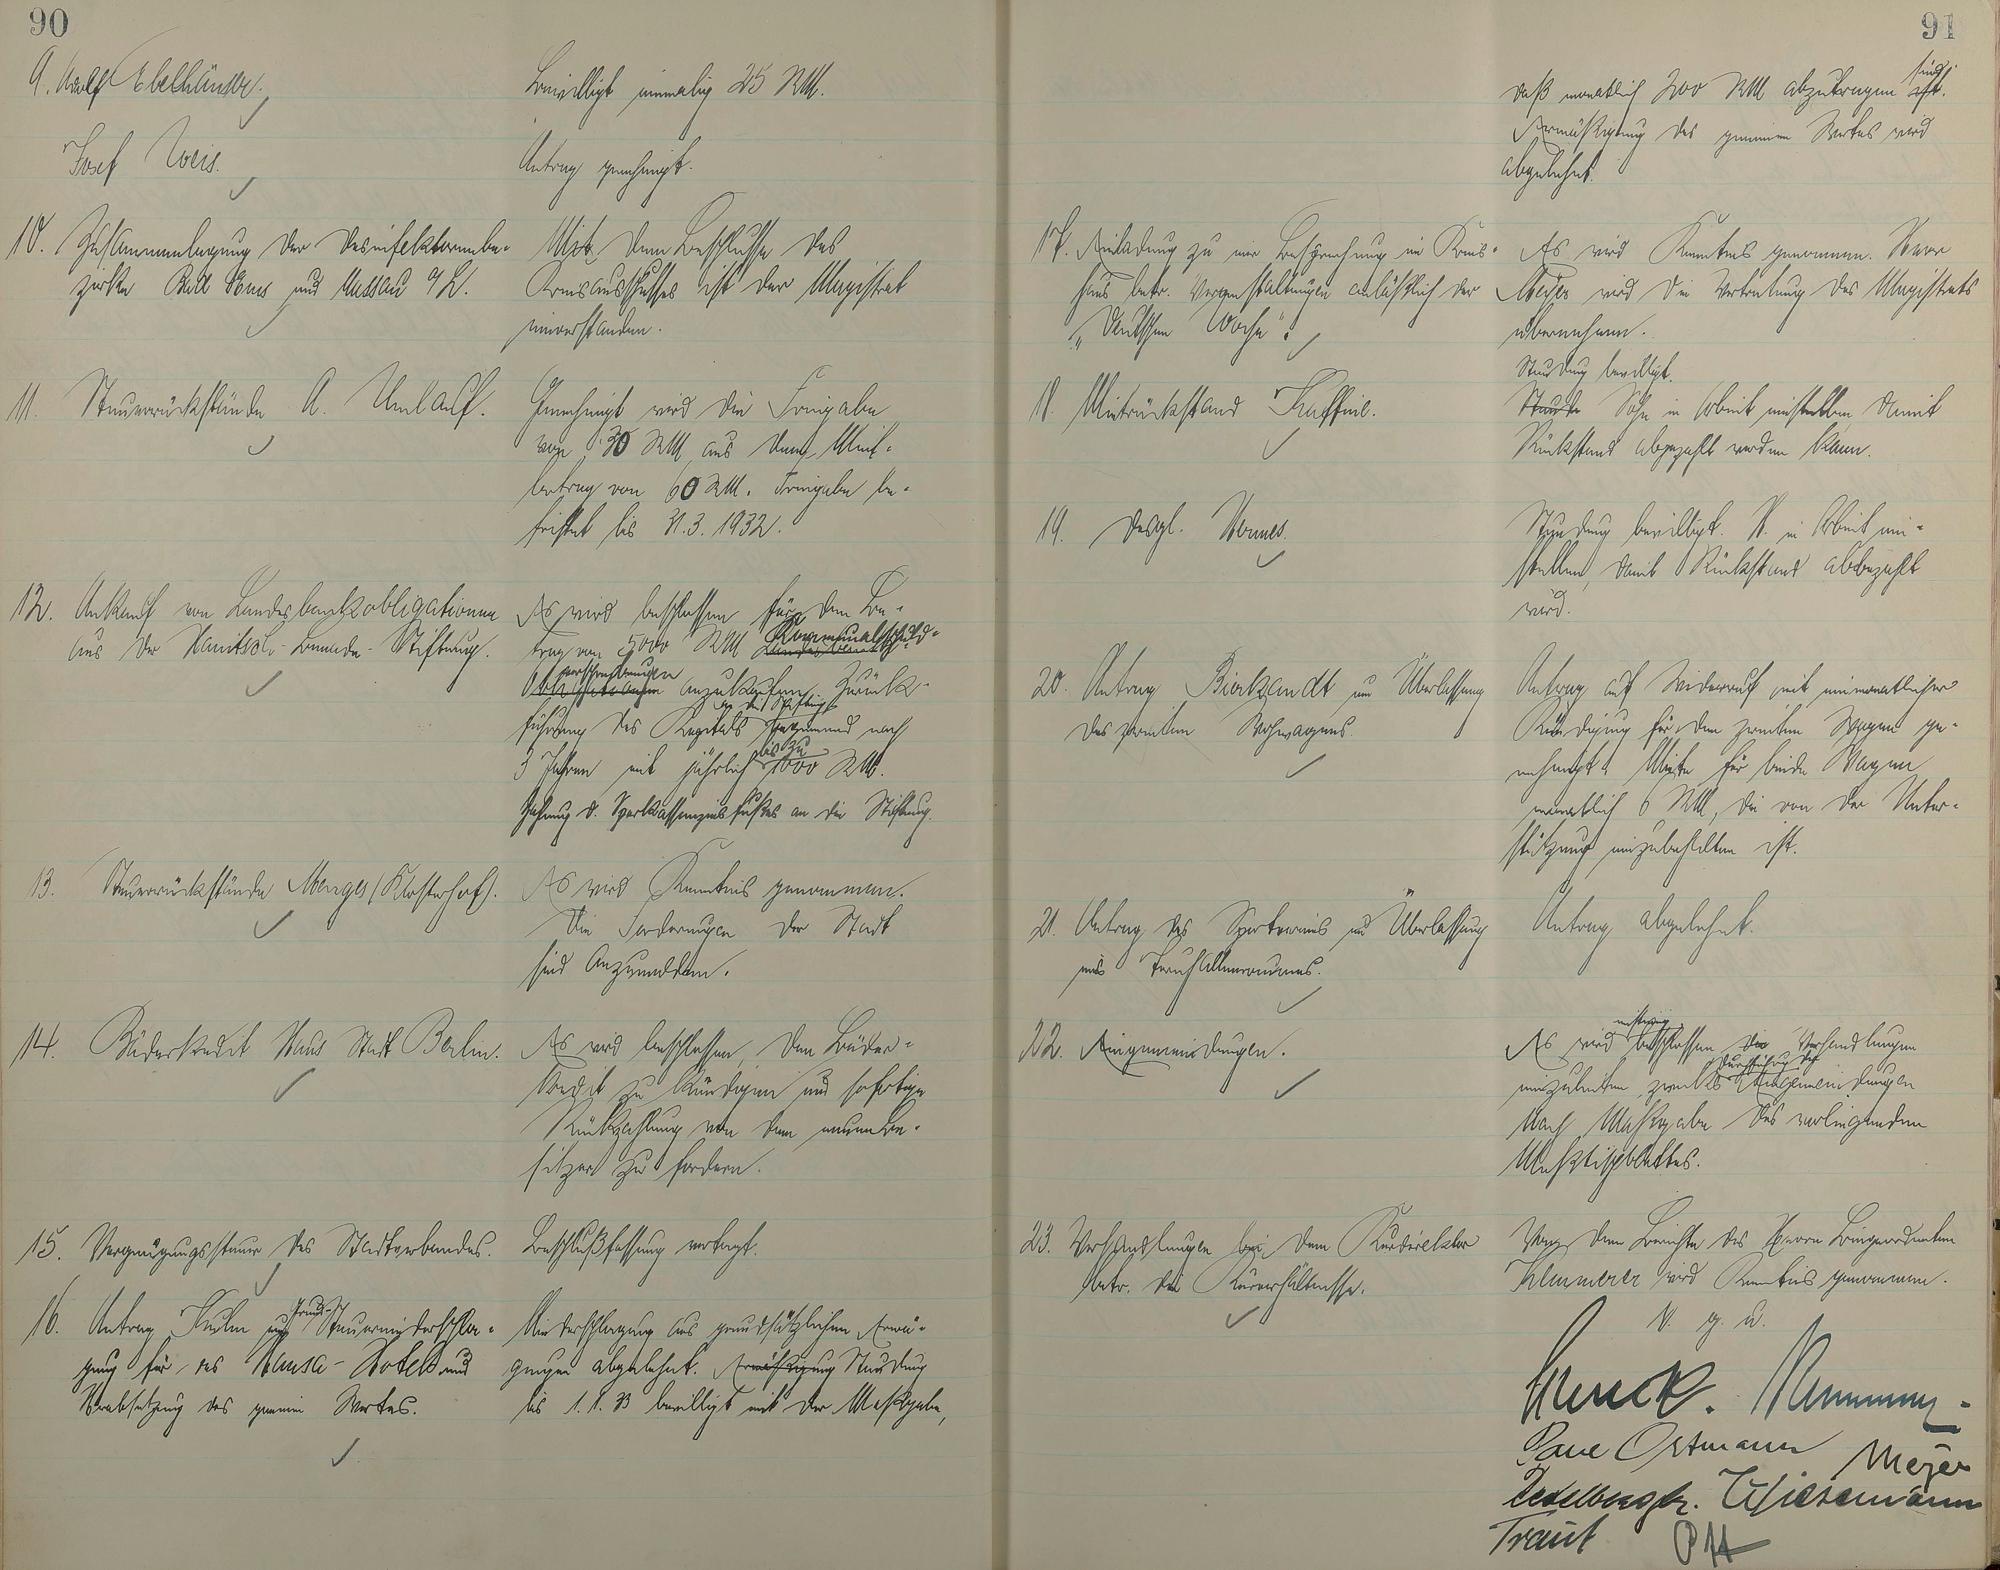 90
9. Adolf Ebelhäuser.
Bewilligt einmalig 25 RM.
Josef Weis.
Antrag genehmigt.
10. Zusammenlegung der Desinfektorenbe-
zirke Bad Ems und Nassau a/L.
Mit dem Beschlusse des
Kreisausschusses ist der Magistrat
einverstanden.
11. Steuerrückstände A. Umlauf.
Genehmigt wird die Freigabe
von 30 RM aus dem Miet-
betrag von 60 RM. Freigabe be-
fristet bis 31.3.1932.
12. Ankauf von Landesbankobligationen
aus der Stiftung.
Es wird beschlossen für den Be-
trag von 5000 RM Kommunalschuld-
verschreibungen anzukaufen. Zurück-
führung des Kapitals an die Stiftung nach
3 Jahren mit jährlich bis zu 1000 RM.
Zahlung d. Sparkassenzinsfußes an die Stiftung.
13. Steuerrückstände Menges (Klosterhof).
Es wird Kenntnis genommen.
Die Forderungen der Stadt
sind anzumelden.
14. Bäderkredit Haus Stadt Berlin.
Es wird beschlossen, den Bäder-
kredit zu kündigen und sofortige
Rückzahlung von dem neuen Be-
sitzer zu fordern.
15. Vergnügungssteuer des Stadtverbandes.
Beschlußfassung vertagt.
16. Antrag um Grund-Steuerniederschla-
gung für das Hansa-Hotel und
Herabsetzung des gemeinen Wertes.
Niederschlagung aus grundsätzlichen Erwä-
gungen abgelehnt. Ermäßigung Stundung
bis 1.1.33 bewilligt mit der Maßgabe,
91
daß monatlich 200 RM abzutragen ist. sind.
Ermäßigung des gemeinen Wertes wird
abgelehnt.
17. Einladung zu einer Besprechung im Kreis-
haus betr. Veranstaltungen anläßlich der
„Deutschen Woche".
Es wird Kenntnis genommen. Herr
Meyer wird die Vertretung des Magistrats
übernehmen.
18. Mietrückstand
Stundung bewilligt.
Sohn in Arbeit einstellen damit
Rückstand abgezahlt werden kann.
19. Desgl. Hermes.
Stundung bewilligt. H. in Arbeit ein-
stellen, damit Rückstand abbezahlt
wird.
20. Antrag Bierbrandt um Überlassung
des zweiten Wohnwagens.
Antrag auf Widerruf mit einmonatlicher
Kündigung für den zweiten Wagen ge-
nehmigt. Miete für beide Wagen
monatlich 6 RM, die von der Unter-
stützung einzubehalten ist.
21. Antrag des Sportvereins um Überlassung
eines Turnhallenraumes.
Antrag abgelehnt.
22. Eingemeindungen.
Es wird einstimmig beschlossen die Verhandlungen
einzuleiten zwecks Durchführung der Eingemeindungen
nach Maßgabe des vorliegenden
Meßtischblattes.
23. Verhandlungen bei dem Kurdirektor
betr. die Kurverhältnisse.
Von dem Berichte des Herrn Beigeordneten
Kemmerer wird Kenntnis genommen.
V. g. u.
Paul Ortmann
Meyer
Wiesemann
Traut